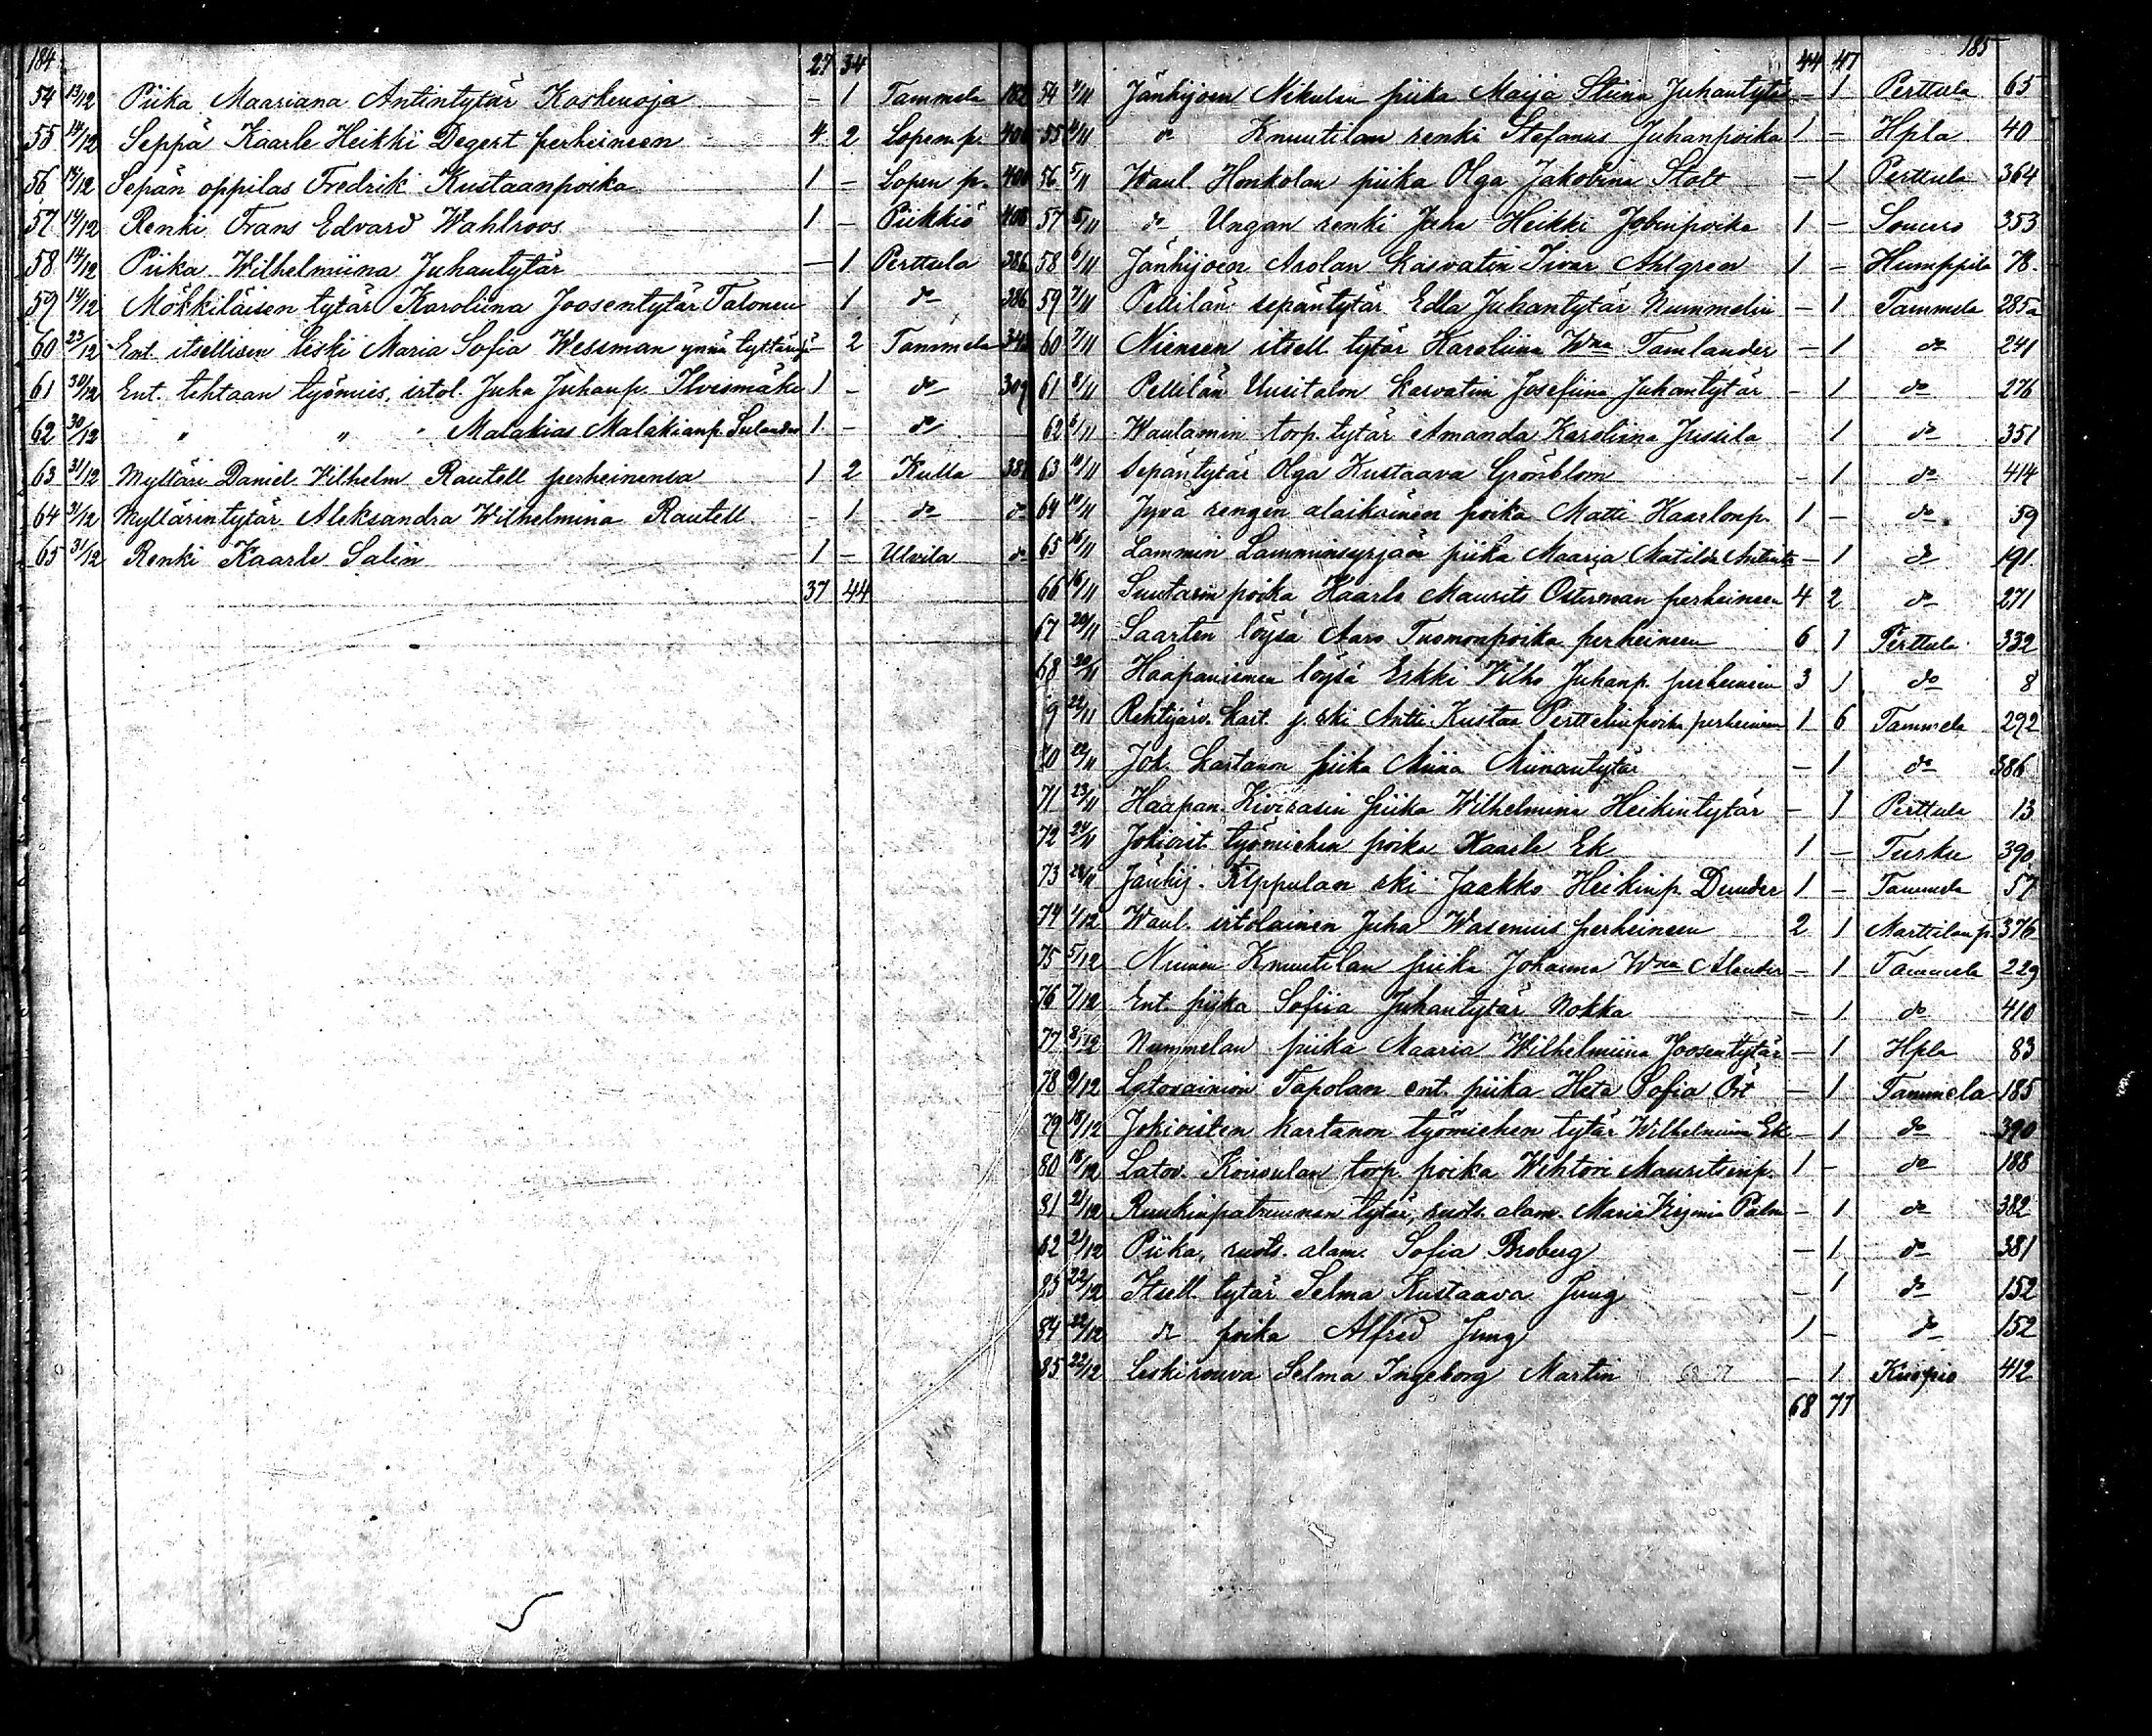 184 27 34
54 13/12 Piika Maariana Antintytär Koskenoja - 1 Tammela 182
55 14/12 Seppä Kaarle Heikki Degert perheineen 4 2 Lopen p. 400
56 14/12 Sepän oppilas Fredrik Kustaanpoika 1 - Lopen p. 400
57 14/12 Renki Frans Edvard Wahlroos 1 - Piikkiö 408
58 14/12 Piika Wilhelmiina Juhantytär - 1 Perttula 386
59 14/12 Mökkiläisen tytär Karoliina Joosentytär Talonen 1 do 386
60 23/12 Ent. itsellisen leski Maria Sofia Wessman ynnä tyttärensä - 2 Tammela
61 30/12 Ent. tehtaan työmies, irtol. Juha Juhanp. Ilvesmäki 1 - do 309
62 30/12 " " " Malakias Malakianp. 1 - do
63 31/12 Mylläri Daniel Vilhelm Rautell perheinensa 1 2 Kulla 381
64 31/12 Myllärintytär Aleksandra Wilhelmina Rautell - 1 do do
65 31/12 Renki Kaarle Salin 1 - Ulvila do
37 44
185
44 47
54 4/11 Jänhijoen Nikulan piika Maija Stiina Juhantytär - 1 Perttula 65
55 4/11 do Knuutilan renki Stefanus Juhanpoika 1 - Hpla 40
56 5/11 Waul. Honkolan piika Olga Jakobina Stolt - 1 Perttula 364
57 5/11 do Ungan renki Juha Heikki 1 - Somero 353
58 6/11 Jänhijoen Arolan kasvatin Iivar Ahlgren 1 - Humppila 78
59 7/11 Pellilän sepäntytär Edla Juhantytär Nummelin - 1 Tammela 285a
60 7/11 Niemen itsell. tytär Karoliina Wna Tamlander - 1 do 241
61 8/11 Pellilän Uusitalon kasvatin Josefiina Juhantytär - 1 do 276
62 6/11 Waulamin torp. tytär Amanda Karoliina Jussila 1 do 351
63 10/11 Sepäntytär Olga Kustaava Grönblom - 1 do 414
64 10/11 Jyvä rengin alaikäinen poika Matti Kaarlonp. 1 - do 59
65 16/11 Lammin Lamminsyrjän piika Maaria Matilda - 1 do 191
66 16/11 Suutarin poika Kaarle Maurits Österman perheineen 4 2 do 271
67 20/11 Saarten löysä Aaro Tuomonpoika perheineen 6 1 Perttula 332
68 20/11 Haapaniemen löysä Erkki Vilho Juhanp. perheineen 3 1 do 8
9 22/11 Rehtijärv. kart. j. rki Antti Kustaa Perttelinpoika perheineen 1 6 Tammela 292
70 22/11 Jok. kartanon piika Miina Miinantytär - 1 do 386
71 23/11 Haapan. Kivirasin piika Wilhelmina Heikintytär - 1 Perttula 13
72 24/11 Jokioist. työmiehen poika Kaarle Ek 1 - Turku 390
73 28/11 Jänhij. Kippulan rki Jaakko Heikinp. Dunder 1 - Tammela 57
74 1/12 Waul. irtolainen Juha Wasenius perheineen 2 1 Marttilan p. 376
75 5/12 Niemen Knuutilan piika Johanna Wna Alander - 1 Tammela 229
76 7/12 Ent. piika Sofiia Juhantytär Nokka - 1 do 410
77 8/12 Nummelan piika Maaria Wilhelmiina Joosentytär - 1 Hpla 83
78 9/12 Latovainion Tapolan ent. piika Heta Sofia Öst - 1 Tammela 185
79 18/12 Jokioisten kartanon työmiehen tytär Wilhelmiina Ek - 1 do 390
80 18/12 Latov. Koivulan torp. poika Wihtori Mauritsinp. 1 - do 188
81 21/12 Ruukinpatruunan tytär, ruots. alam. Maria Virginia Palm - 1 do 382
82 21/12 Piika, ruots. alam. Sofia Broberg - 1 do 381
83 22/12 Itsell. tytär Selma Kustaava Jung - 1 do 152
84 22/12 do poika Alfred Jung 1 - do 152
85 22/12 Leskirouva Selma Ingeborg Martin 68 77 - 1 Kuopio 412
68 77